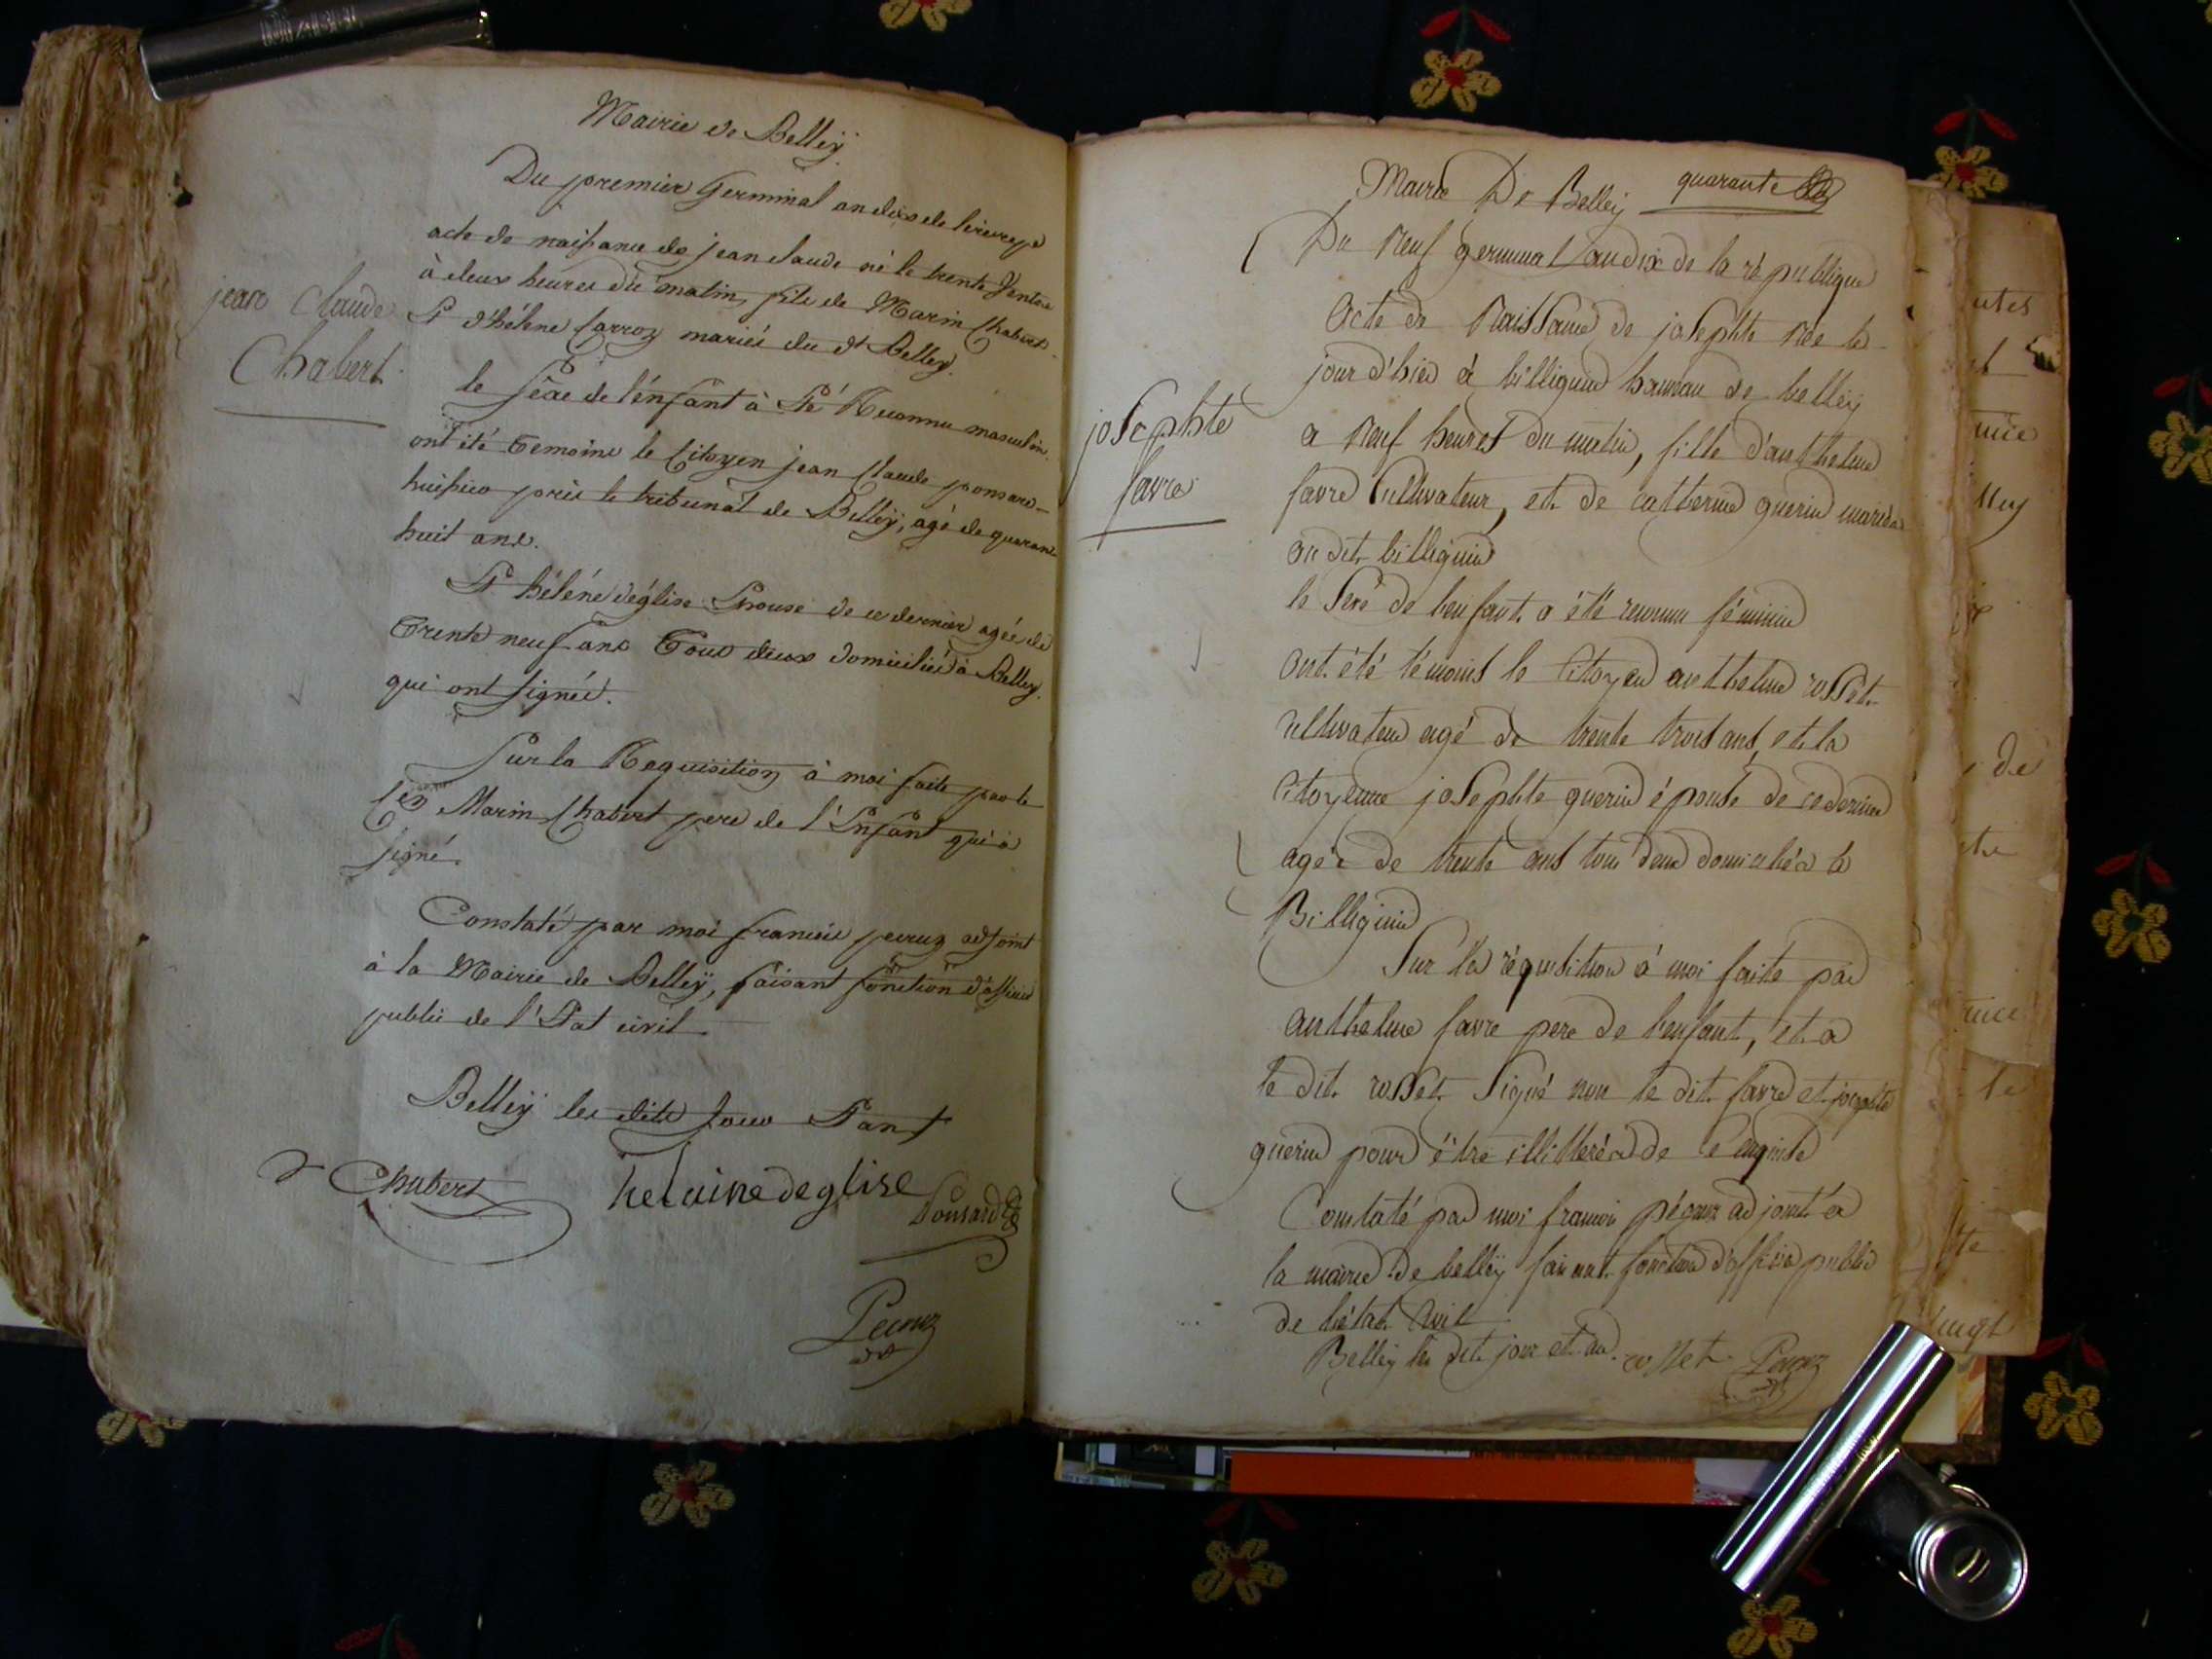 Mairie de Belleÿ
Du premier Germinal an dix de l'ere repe
acte de naissance de jean claude né le trente Ventose
à deux heures du matin, fils de Marin Chabert
Et d'hélene Carroz mariés du dt Belley.
jean Claude
Chabert
le sexe de l'énfant à Eté Reconnu masculin.
ont été Temoins le Citoyen jean Claude ponsard
huissier près le tribunal de Belleÿ, agé de quarante
huit ans.
Et héléne déglise Epouse de ce dernier agée de
Trente neuf ans Tous deux domiciliés à Belley.
qui ont signés.
Sur la Requisition à moi faite par le
Cen Marin Chabert pere de l'Enfant qui à
signé.
Constaté par moi francois pecruz adjoint
à la Mairie de Belleÿ, faisant fonction d'officier
public de l'Etat civil
Belleÿ les dits Jour Et an
Chabert helaine deglise
Ponsard
Pecruz
Mairie De Belleÿ quarante
Du Neuf germinal an dix de la république
Acte de Naissance de josephte née le
jour d'hier à billignin hameau de belleÿ
a neuf heures du matin, fille d'anthelme
favre Cultivateur, et de catherine guerin mariés
au dit billignin
josephte
favre
le sexe de l'enfant a été reconnu féminin
ont été témoins le Citoyen anthelme rosset
cultivateur agé de trente trois ans, et la
Citoyenne josephte guerin épouse de ce dernier
agée de trente ans tous deux domiciliés à
Billignin
Sur la réquisition à moi faite par
anthelme favre pere de l'enfant, et a
le dit rosset signé non le dit favre et josephte
guerin pour être illitterés de ce enquis
Constaté par moi francois pécruz adjoint à
la mairie de belleÿ faisant fonction d'officier public
de l'état Civil
Belleÿ les dit jour et an. rosset Pecruz